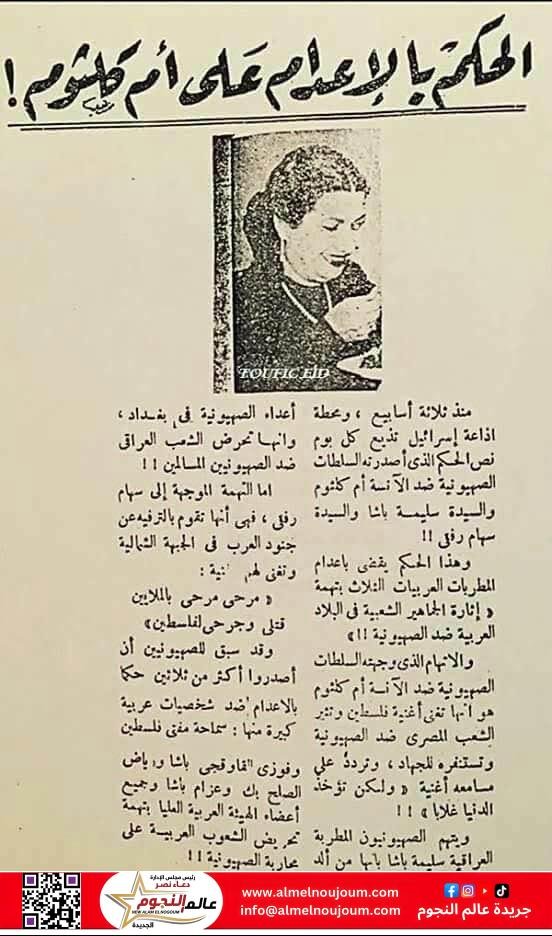 الحكم بالإعدام على أم كلثوم !
TOUFIC EID
منذ ثلاثة أسابيع ، ومحطة
اذاعة إسرائيل تذيع كل يوم
نص الحكم الذى أصدرته السلطات
الصهيونية ضد الآنسة أم كلثوم
والسيدة سليمة باشا والسيدة
سهام رفقى !!
وهذا الحكم يقضى باعدام
المطربات العربيات الثلاث بتهمة
« إثارة الجماهير الشعبية فى البلاد
العربية ضد الصهيونية !! »
والاتهام الذى وجهته السلطات
الصهيونية ضد الآنسة أم كلثوم
هو انها تغنى أغنية فلسطين وتثير
الشعب المصرى ضد الصهيونية
وتستنفره للجهاد ، وتردد على
مسامعه أغنية « ولكن تؤخذ
الدنيا غلابا » !!
ويتهم الصهيونيون المطربة
العراقية سليمة باشا بانها من ألد
أعداء الصهيونية فى بغداد ،
وانها تحرض الشعب العراقى
ضد الصهيونيين المسالمين !!
اما التهمة الموجهة إلى سهام
رفقى ، فهى أنها تقوم بالترفيه عن
جنود العرب فى الجبهة الشمالية
وتغنى لهم :
« مرحى مرحى بالملايين
قتلى وجرحى لفلسطين »
وقد سبق للصهيونيين أن
أصدروا أكثر من ثلاثين حكما
بالاعدام ضد شخصيات عربية
كبيرة منها : سماحة مفتى فلسطين
وفوزى القاوقجى باشا ورياض
الصلح بك وعزام باشا وجميع
أعضاء الهيئة العربية العليا بتهمة
تحريض الشعوب العربية على
محاربة الصهيونية !!
رئيس مجلس الإدارة
دعاء نصر
عالم النجوم
NEW ALAM ELNOGOUM
الجديدة
www.almelnoujoum.com
info@almelnoujoum.com
جريدة عالم النجوم